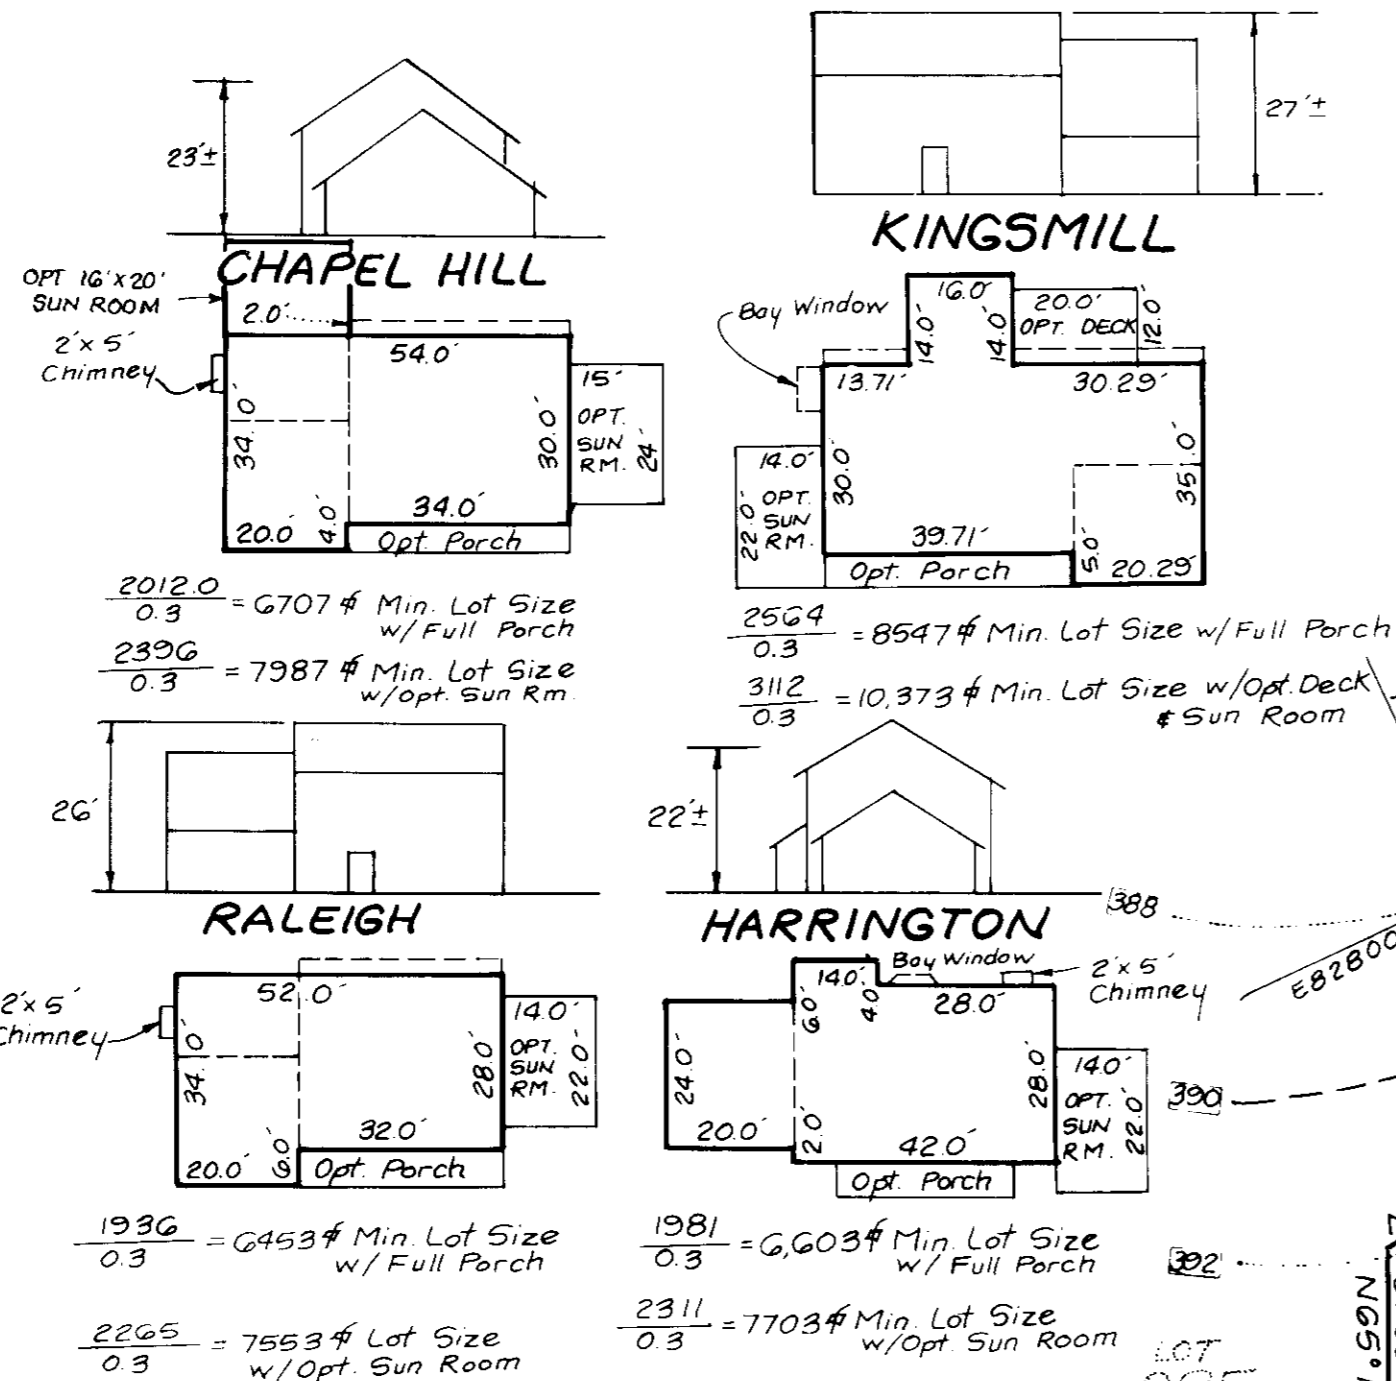 23'±
CHAPEL HILL
OPT 16'x20'
SUN ROOM
2'x5'
Chimney
2.0'
54.0'
34.0'
30.0'
15'
OPT.
SUN
RM.
24'
34.0'
20.0'
4.0'
Opt. Porch
2012.0
0.3
= 6707 ⌗ Min. Lot Size
w/ Full Porch
2396
0.3
= 7987 ⌗ Min. Lot Size
w/opt. Sun Rm.
27'±
KINGSMILL
Bay Window
16.0'
14.0'
14.0'
20.0'
OPT. DECK
12.0'
13.71'
30.29'
30.0'
35.0'
14.0'
OPT.
SUN
RM.
22.0'
39.71'
5.0'
20.29'
Opt. Porch
2564
0.3
= 8547 ⌗ Min. Lot Size w/Full Porch
3112
0.3
= 10,373 ⌗ Min. Lot Size w/Opt. Deck
& Sun Room
26'
RALEIGH
2'x5'
Chimney
52.0'
34.0'
28.0'
14.0'
OPT.
SUN
RM.
22.0'
32.0'
20.0'
6.0'
Opt. Porch
1936
0.3
= 6453 ⌗ Min. Lot Size
w/ Full Porch
2265
0.3
= 7553 ⌗ Lot Size
w/Opt. Sun Room
22'±
HARRINGTON
Bay Window
2'x5'
Chimney
14.0'
6.0'
4.0'
28.0'
24.0'
20.0'
2.0'
42.0'
28.0'
14.0'
OPT.
SUN
RM.
22.0'
Opt. Porch
1981
0.3
= 6,603 ⌗ Min. Lot Size
w/ Full Porch
2311
0.3
= 7703 ⌗ Min. Lot Size
w/Opt. Sun Room
388
E82800
390
392
LOT
N65°